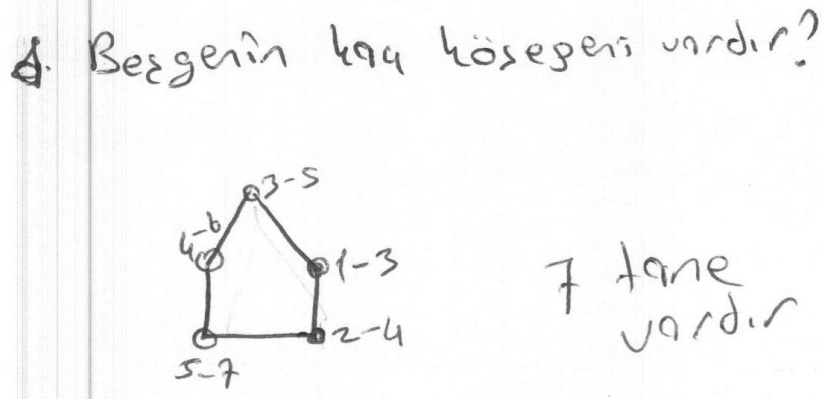 Beşgenin kaç köşegeni vardır?
3-5
4-6
1-3
2-4
5-7
7 tane
vardır